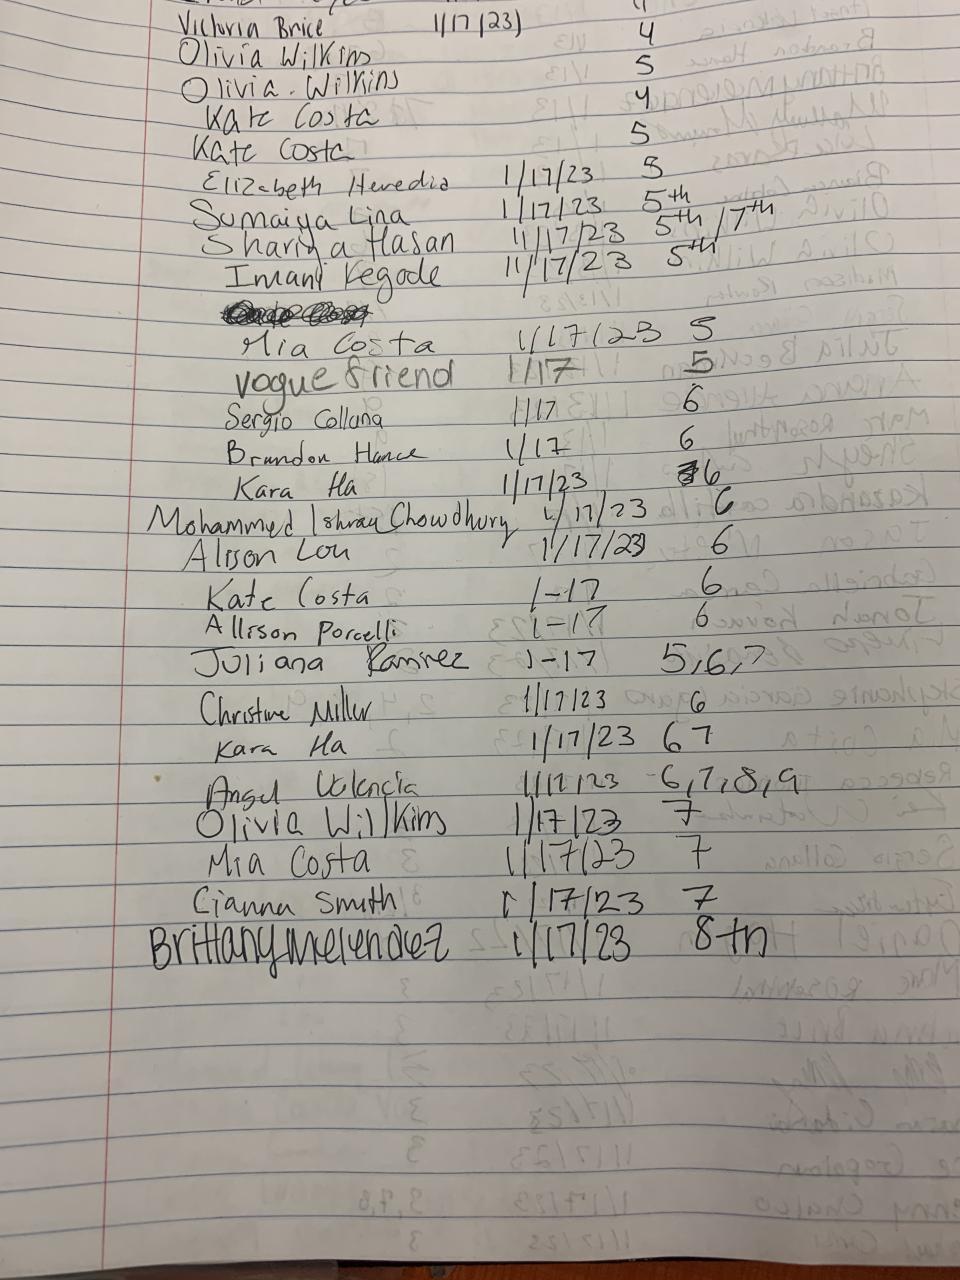 Victoria Brice 1/17/23) 4
Olivia Wilkins 5
Olivia. Wilkins 4
Kate Costa
Kate Costa 5
Elizabeth Heredia 1/17/23 5
Sumaiya Lina 1/17/23 5th
Sharika Hasan 11/17/23 5th/7th
Imani Kegode 11/17/23 5th
Mia Costa 1/17/23 5
vogue friend 1/17 5
Sergio Collana 1/17 6
Brandon Hance 1/17 6
Kara Ha 1/17/23 6
Mohammed Ishraq Chowdhury 1/17/23 6
Alison Lou 1/17/23 6
Kate Costa 1-17 6
Allison Porcelli 1-17 6
Juliana Ramirez 1-17 5,6,7
Christine Miller 1/17/23 6
Kara Ha 1/17/23 6 7
Angel Valencia 1/17/23 6,7,8,9
Olivia Willkins 1/17/23 7
Mia Costa 1/17/23 7
Cianna Smith 1/17/23 7
Brittany Melendez 1/17/23 8th